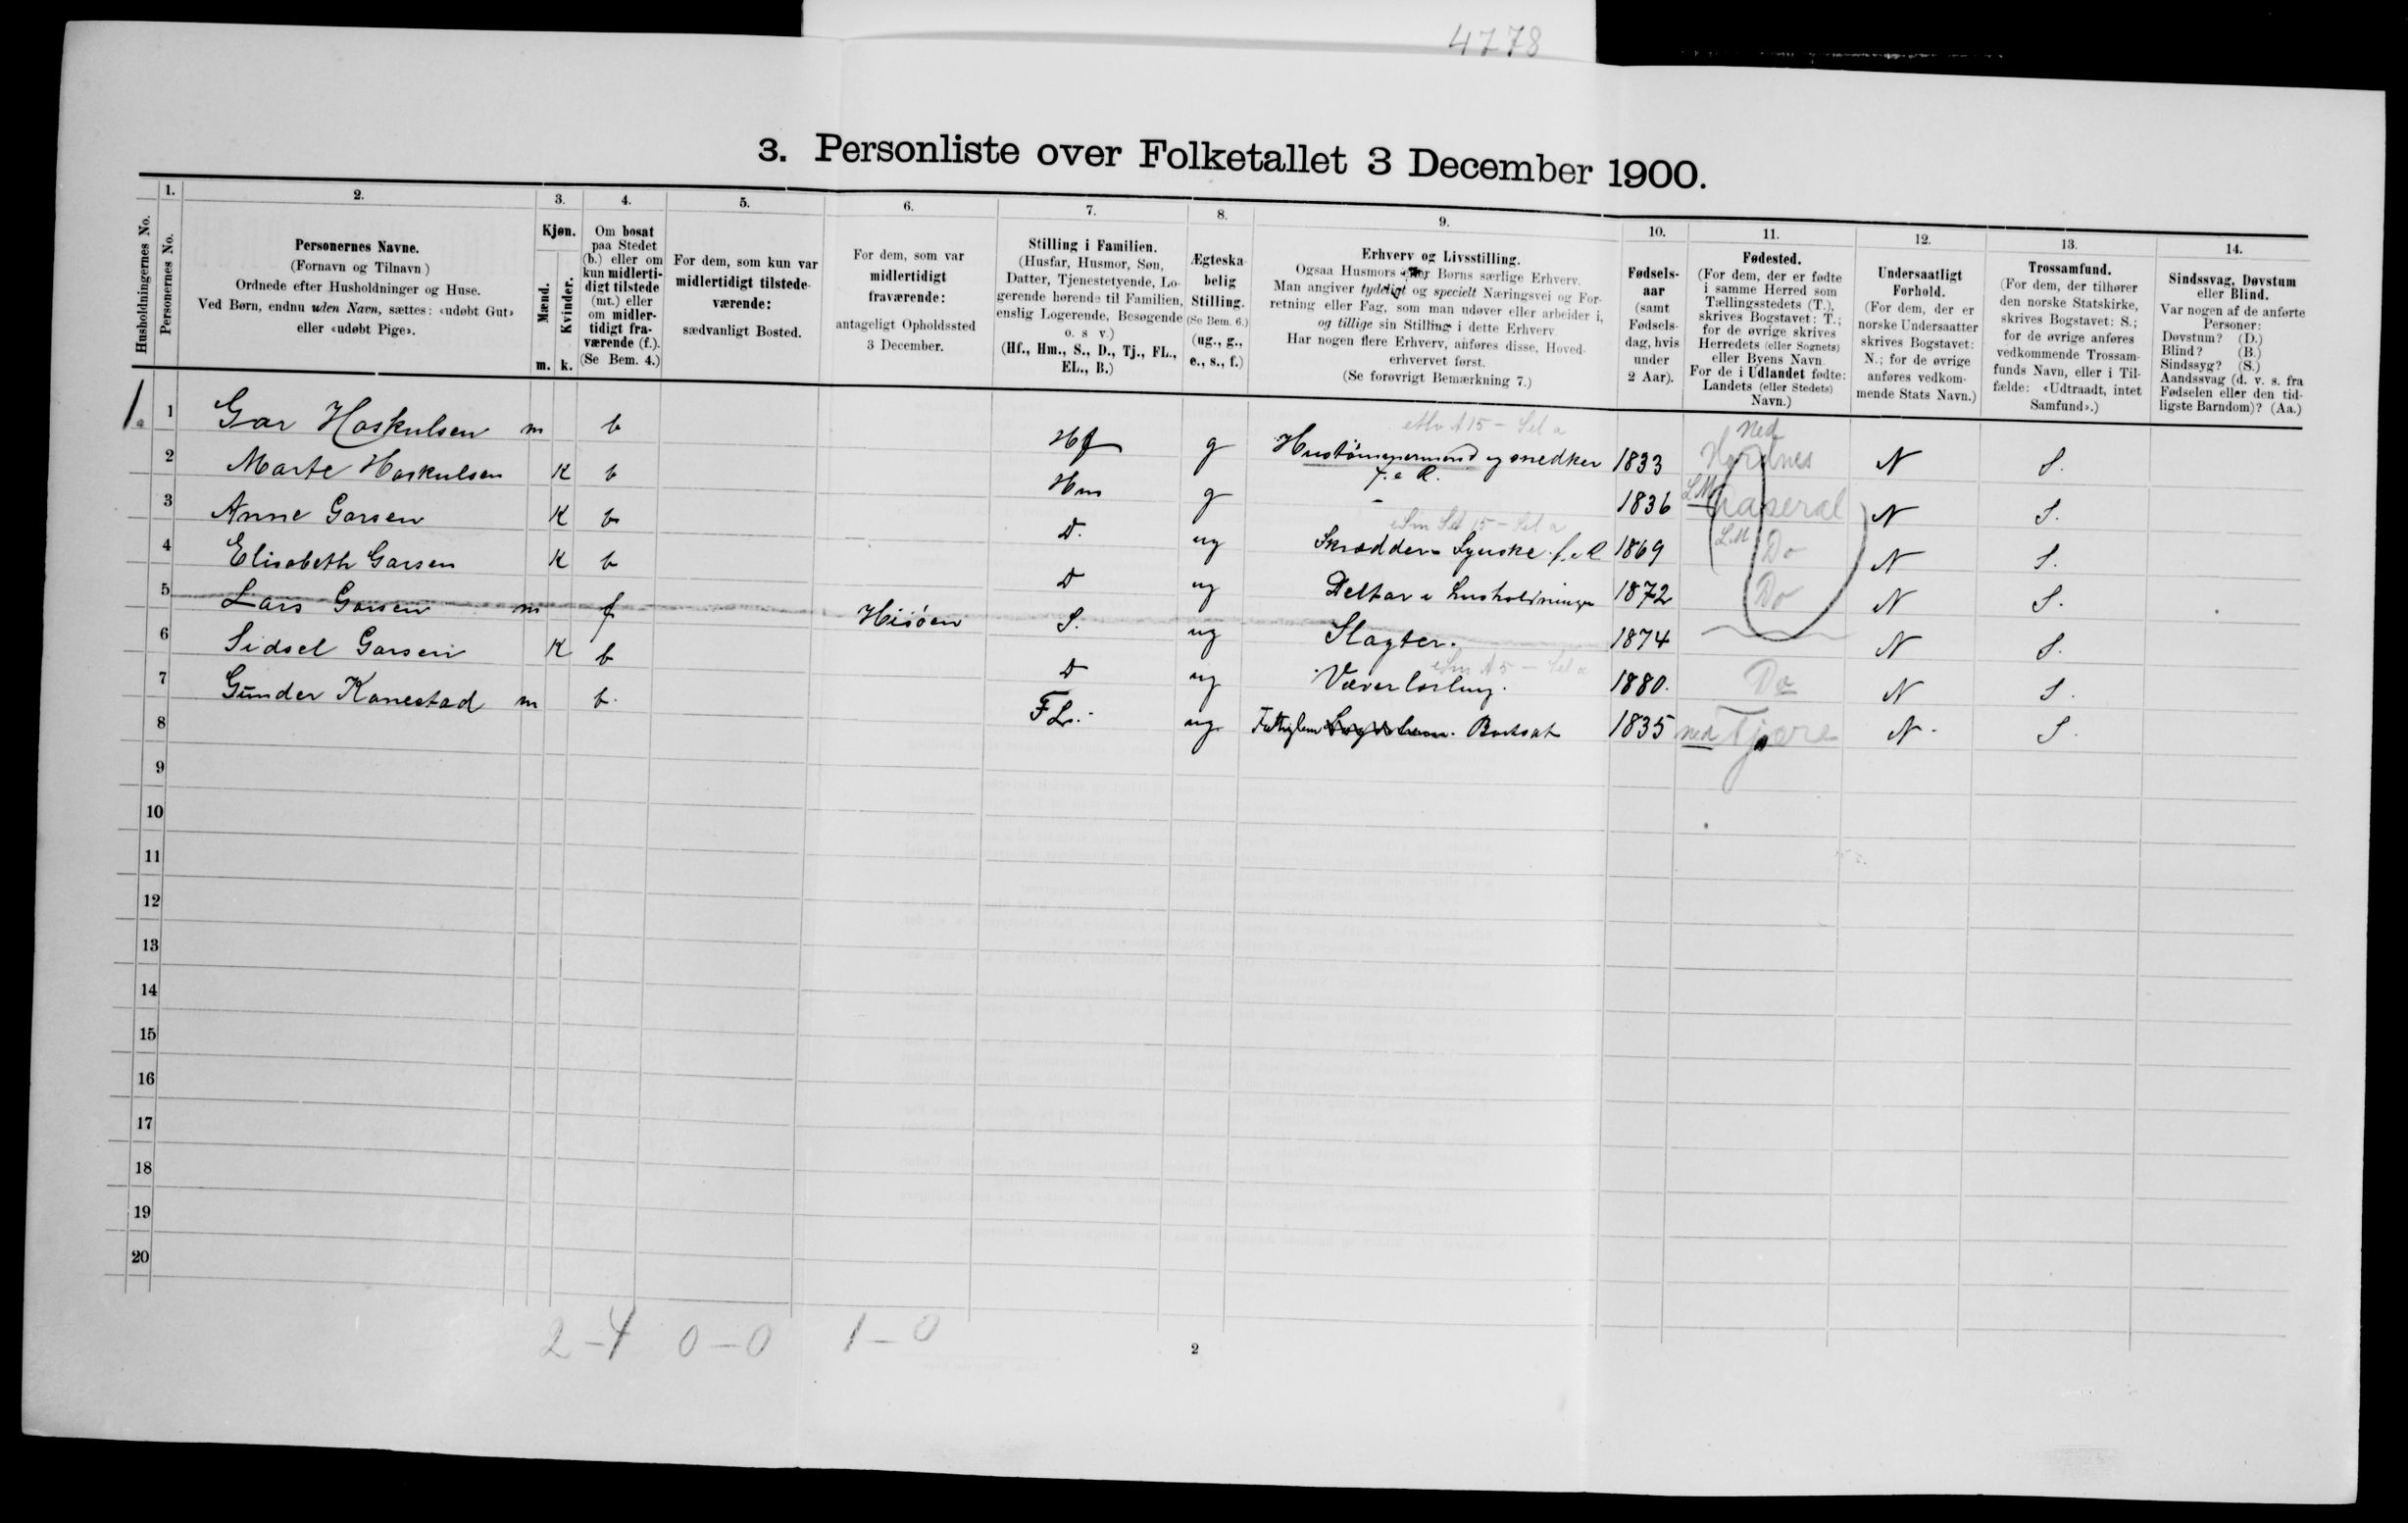 4778
3. Personliste over Folketallet 3 December 1900.
1. 2. 3. 4. 5. 6. 7. 8. 9. 10. 11. 12. 13. 14.
Husholdningernes No.
Personernes No.
Personernes Navne.
(Fornavn og Tilnavn)
Ordnede efter Husholdninger og Huse.
Ved Børn, endnu uden Navn, sættes: «udøbt Gut»
eller «udøbt Pige».
Kjøn.
Mænd.
Kvinder.
m. k.
Om bosat
paa Stedet
(b.) eller om
kun midlerti-
digt tilstede
(mt.) eller
om midler-
tidigt fra-
værende (f.).
(Se Bem. 4.)
For dem, som kun var
midlertidigt tilstede-
værende:
sædvanligt Bosted.
For dem, som var
midlertidigt
fraværende:
antageligt Opholdssted
3 December.
Stilling i Familien.
(Husfar, Husmor, Søn,
Datter, Tjenestetyende, Lo-
gerende hørende til Familien,
enslig Logerende, Besøgende
o. s v.)
(Hf., Hm., S., D., Tj., FL.,
EL., B.)
Ægteska-
belig
Stilling.
(Se Bem. 6.)
(ug., g.,
e., s., f.)
Erhverv og Livsstilling.
Ogsaa Husmors eller Børns særlige Erhverv.
Man angiver tydeligt og specielt Næringsvei og For-
retning eller Fag, som man udøver eller arbeider i,
og tillige sin Stilling i dette Erhverv.
Har nogen flere Erhverv, anføres disse, Hoved-
erhvervet først.
(Se forøvrigt Bemærkning 7.)
Fødsels-
aar
(samt
Fødsels-
dag, hvis
under
2 Aar).
Fødested.
(For dem, der er fødte
i samme Herred som
Tællingsstedets (T.),
skrives Bogstavet: T.;
for de øvrige skrives
Herredets (eller Sognets)
eller Byens Navn.
For de i Udlandet fødte:
Landets (eller Stedets)
Navn.)
Undersaatligt
Forhold.
(For dem, der er
norske Undersaatter
skrives Bogstavet:
N.; for de øvrige
anføres vedkom-
mende Stats Navn.)
Trossamfund.
(For dem, der tilhører
den norske Statskirke,
skrives Bogstavet: S.;
for de øvrige anføres
vedkommende Trossam-
funds Navn, eller i Til-
fælde: «Udtraadt, intet
Samfund».)
Sindssvag, Døvstum
eller Blind.
Var nogen af de anførte
Personer:
Døvstum? (D.)
Blind? (B.)
Sindssyg? (S.)
Aandssvag (d. v. s. fra
Fødselen eller den tid-
ligste Barndom)? (Aa.)
1. 1 Gar Haskulsen m b Hf g Hustømmermand og snedker 1833 N S.
f.e.R.
2 Marte Haskulsen K b Hm g - 1836 N S.
3 Anne Garsen K b D. ug Skrædder- Syerske f.e.R 1869 L.M Do N S.
4 Elisabeth Garsen K b D ug Deltar i husholdningen 1872 Do N S.
5 Lars Garsen m f Hisøen S. ug Slagter. 1874 N S.
6 Sidsel Garsen K b D ug Væverlærling. 1880. Do N S.
7 Gunder Kanestad m b. FL. ug Fattiglem Bortsat 1835 ned N. S.
8
9
10
11
12
13
14
15
16
17
18
19
20
2 - 4 0 - 0 1 - 0
2